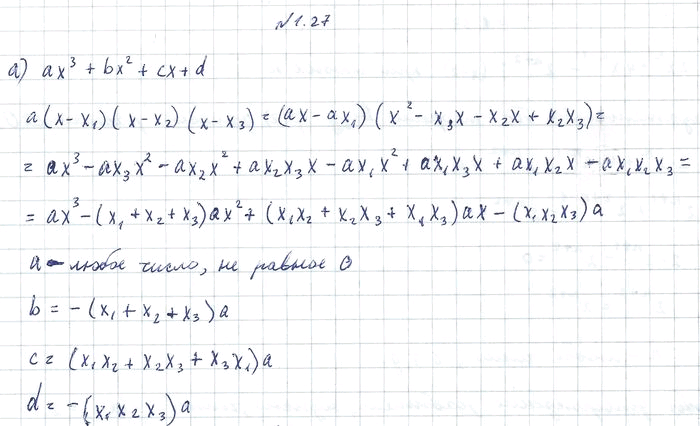 №1.27
а) ax³ + bx² + cx + d
a(x-x₁)(x-x₂)(x-x₃) = (ax-ax₁)(x² - x₃x - x₂x + x₂x₃) =
= ax³ - ax₃x² - ax₂x² + ax₂x₃x - ax₁x² + ax₁x₃x + ax₁x₂x - ax₁x₂x₃ =
= ax³ - (x₁ + x₂ + x₃)ax² + (x₁x₂ + x₂x₃ + x₁x₃)ax - (x₁x₂x₃)a
a - любое число, не равное 0
b = -(x₁ + x₂ + x₃)a
c = (x₁x₂ + x₂x₃ + x₃x₁)a
d = -(x₁x₂x₃)a